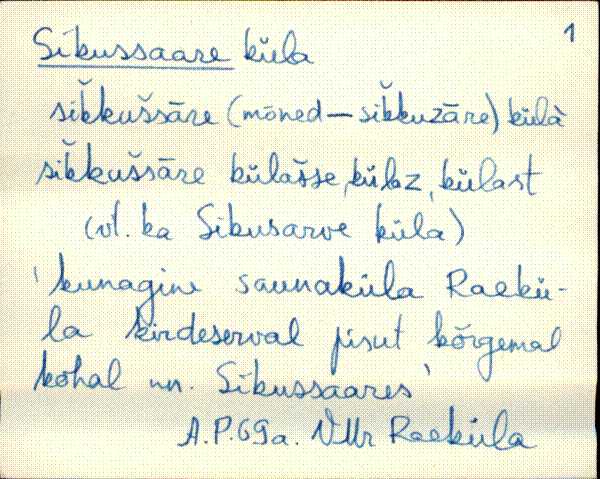 1
Sikussaare küla
sik̆kus̆sāre (mōned — sik̆kuzāre) külà
sik̆kus̆sāre külas̆se, külaz, külast
(vt. ka Sikusarve küla)
'kunagine saunaküla Raekü-
la kirdeserval pisut kõrgemal
kohal nn. Sikussaares'
A.P. 69a. VMr Raeküla